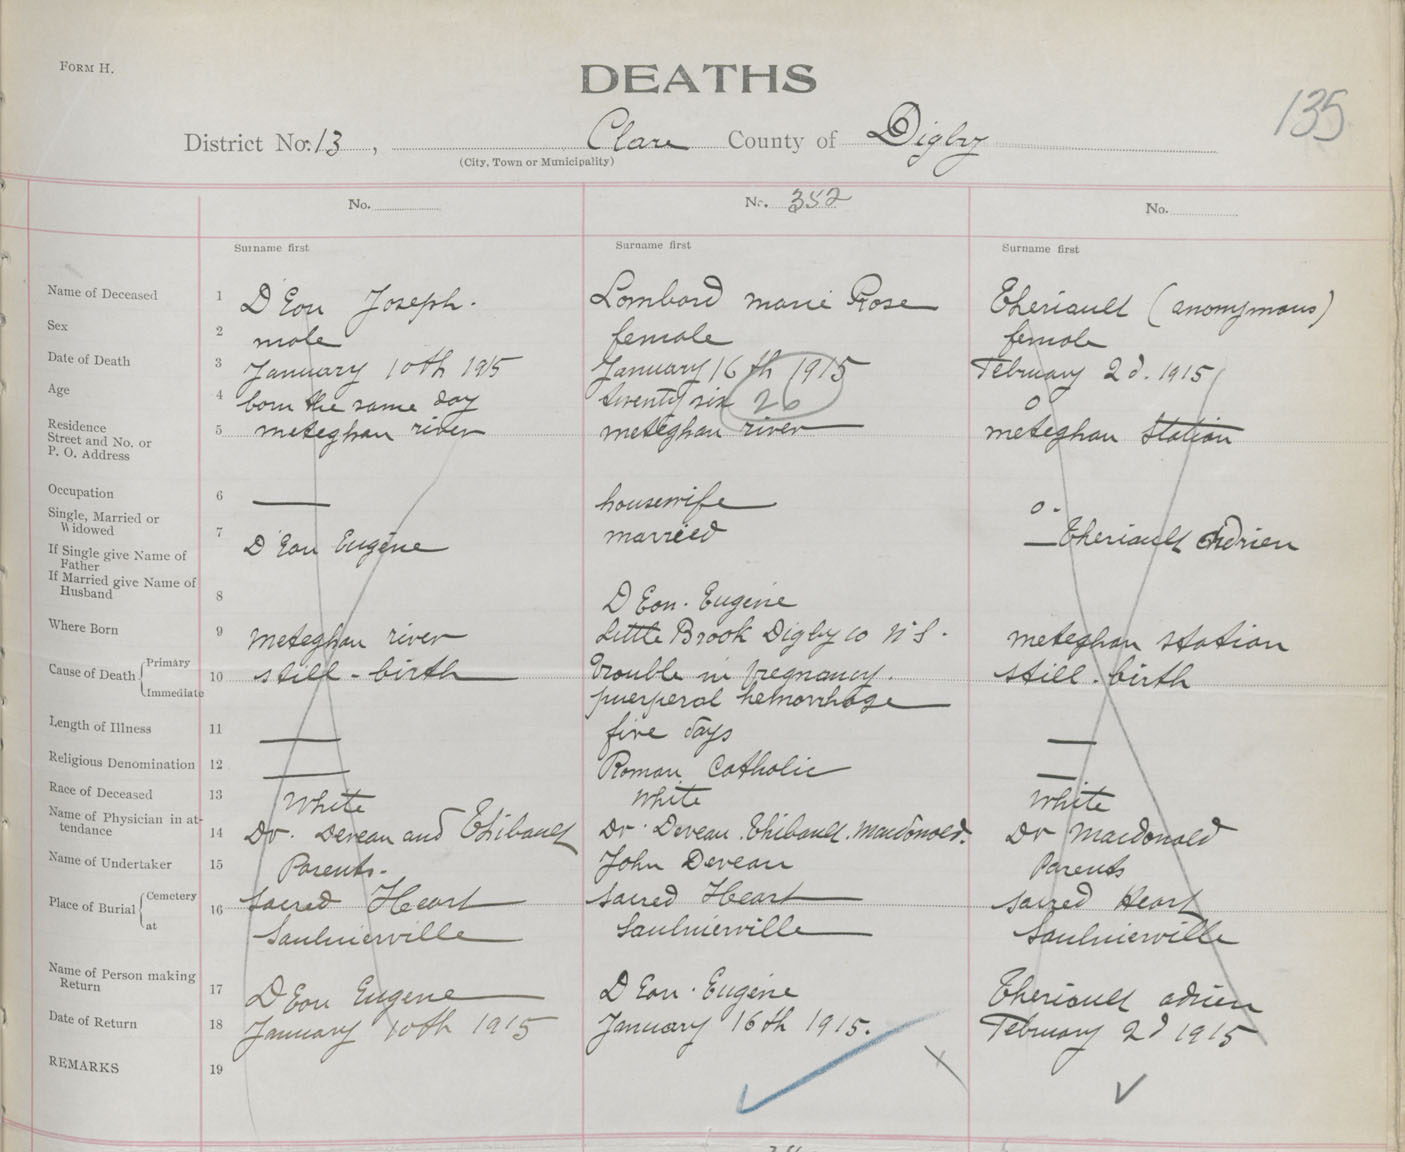 FORM H.
DEATHS
135
District No: 13, Clare County of Digby
(City, Town or Municipality)
No.
No. 352
No.
Surname first
Surname first
Surname first
Name of Deceased 1 D'Eon Joseph. Lombard marie Rose Theriault (anonymous)
Sex 2 male female female
Date of Death 3 January 10th 1915 January 16th 1915 February 2d. 1915
Age 4 born the same day twenty six 26 0
Residence
Street and No. or
P. O. Address
5 meteghan river meteghan river meteghan station
Occupation 6 — housewife 0.
Single, Married or
Widowed
7 married
If Single give Name of
Father
D'Eon Eugene — Theriault Adrien
If Married give Name of
Husband
8 D'Eon. Eugene
Where Born 9 meteghan river Little Brook Digby co N S. meteghan station
Cause of Death { Primary
Immediate
10 still-birth trouble in pregnancy. still-birth
puerperal hemorrhage
Length of Illness 11 — five days —
Religious Denomination 12 — Roman Catholic —
Race of Deceased 13 White White White
Name of Physician in at-
tendance
14 Dr. Deveau and Thibault Dr. Deveau. Thibault. Macdonald. Dr Macdonald
Name of Undertaker 15 Parents. John Deveau Parents
Place of Burial { Cemetery
at
16 Sacred Heart Sacred Heart Sacred Heart
Saulnierville Saulnierville Saulnierville
Name of Person making
Return
17 D Eon Eugene D Eon. Eugene Theriault adrien
Date of Return 18 January 10th 1915 January 16th 1915. February 2d 1915
REMARKS 19